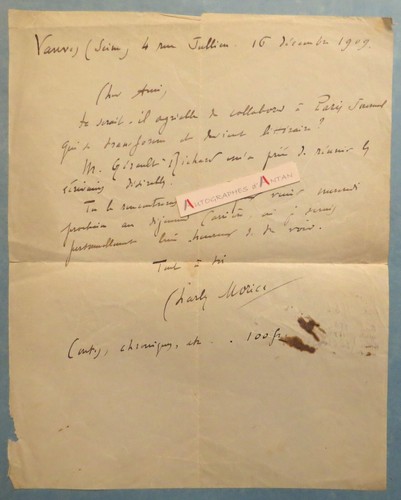 Vanves (Seine) 4 rue Jullien. 16 décembre 1909.
Cher Ami,
te serait-il agréable de collaborer à Paris Journal
qui se transforme et devient littéraire?
M. Gérault-Richard m'a prié de réunir les
écrivains
AUTOGRAPHES D'ANTAN
Tu le rencontreras venir mercredi
prochain au déjeuner où je serai
personnellement bien heureux de te voir.
Tout à toi
Charles Morice
Contes, chroniques, etc.. 100 fr